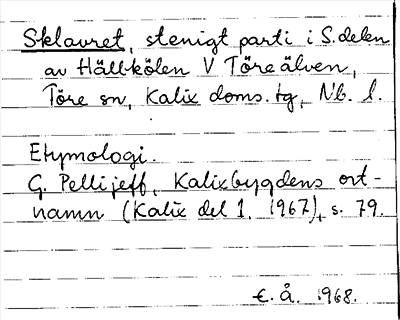 Sklavret, stenigt parti i S. delen
av Hällkölen V Töreälven,
Töre sn, Kalix doms. tg, Nb. l.
Etymologi.
G. Pellijeff, Kalixbygdens ort-
namn (Kalix del 1, 1967), s. 79.
E. Å. 1968.